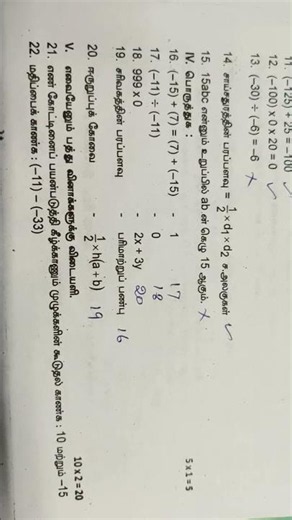 11. (–125) + 25 = –100 ✓
12. (–100) x 0 x 20 = 0 ✓
13. (–30) ÷ (–6) = –6 ✗
14. சாய்சதுரத்தின் பரப்பளவு = 1/2 × d₁ × d₂ ச.அலகுகள் ✓
15. 15abc என்னும் உறுப்பில் ab ன் கெழு 15 ஆகும். ✗
IV. பொருத்துக : 5 x 1 = 5
16. (–15) + (7) = (7) + (–15) - 1 17
17. (–11) ÷ (–11) - 0 18
18. 999 x 0 - 2x + 3y 20
19. சரிவகத்தின் பரப்பளவு - பரிமாற்றுப் பண்பு 16
20. ஈருறுப்புக் கோவை - 1/2 × h(a + b) 19
V. எவையேனும் பத்து வினாக்களுக்கு விடையளி 10 x 2 = 20
21. எண் கோட்டினைப் பயன்படுத்தி கீழ்க்காணும் முழுக்களின் கூடுதல் காண்க : 10 மற்றும் –15
22. மதிப்பைக் காண்க : (–11) – (–33)